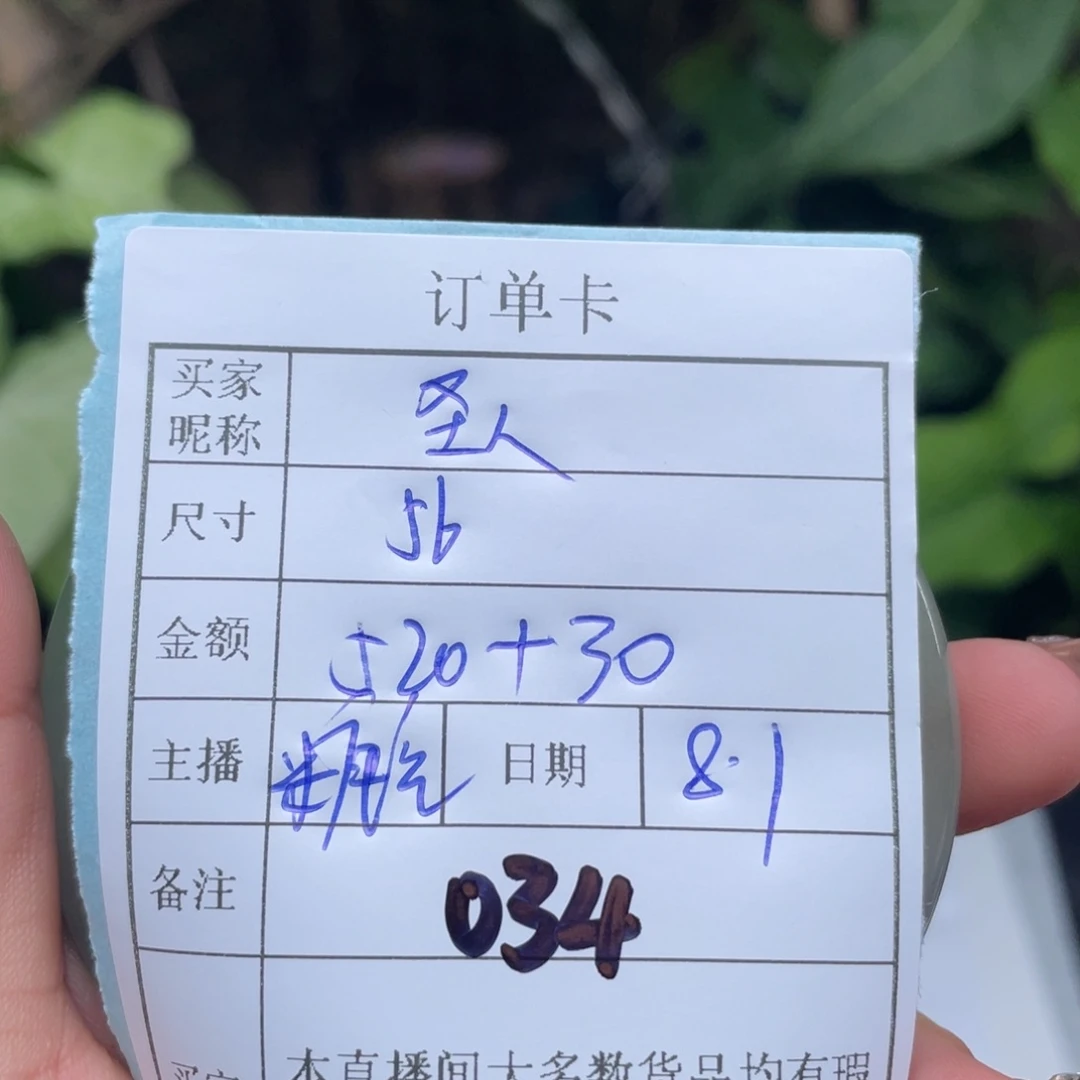 订单卡
买家昵称 圣人
尺寸 56
金额 520+30
主播 日期 8.1
备注 034
本直播间大多数货品均有瑕